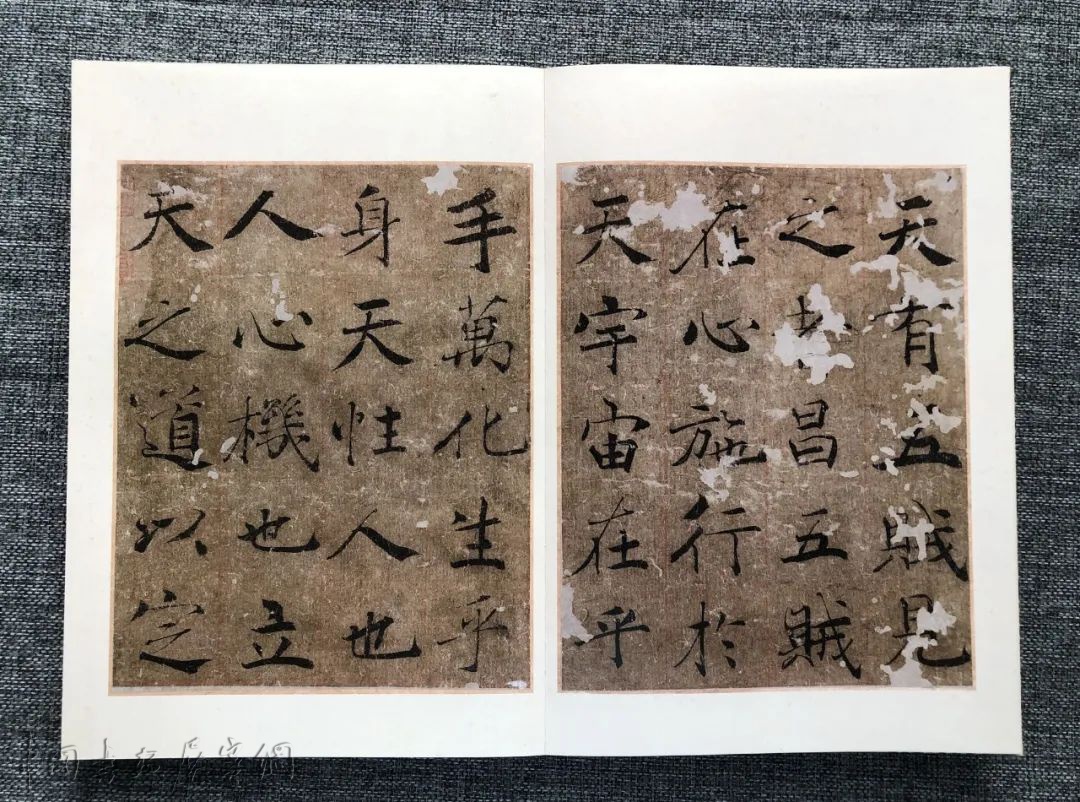 天有五賊見
之者昌五賊
在心施行於
天宇宙在乎
手萬化生乎
身天性人也
人心機也立
天之道以定